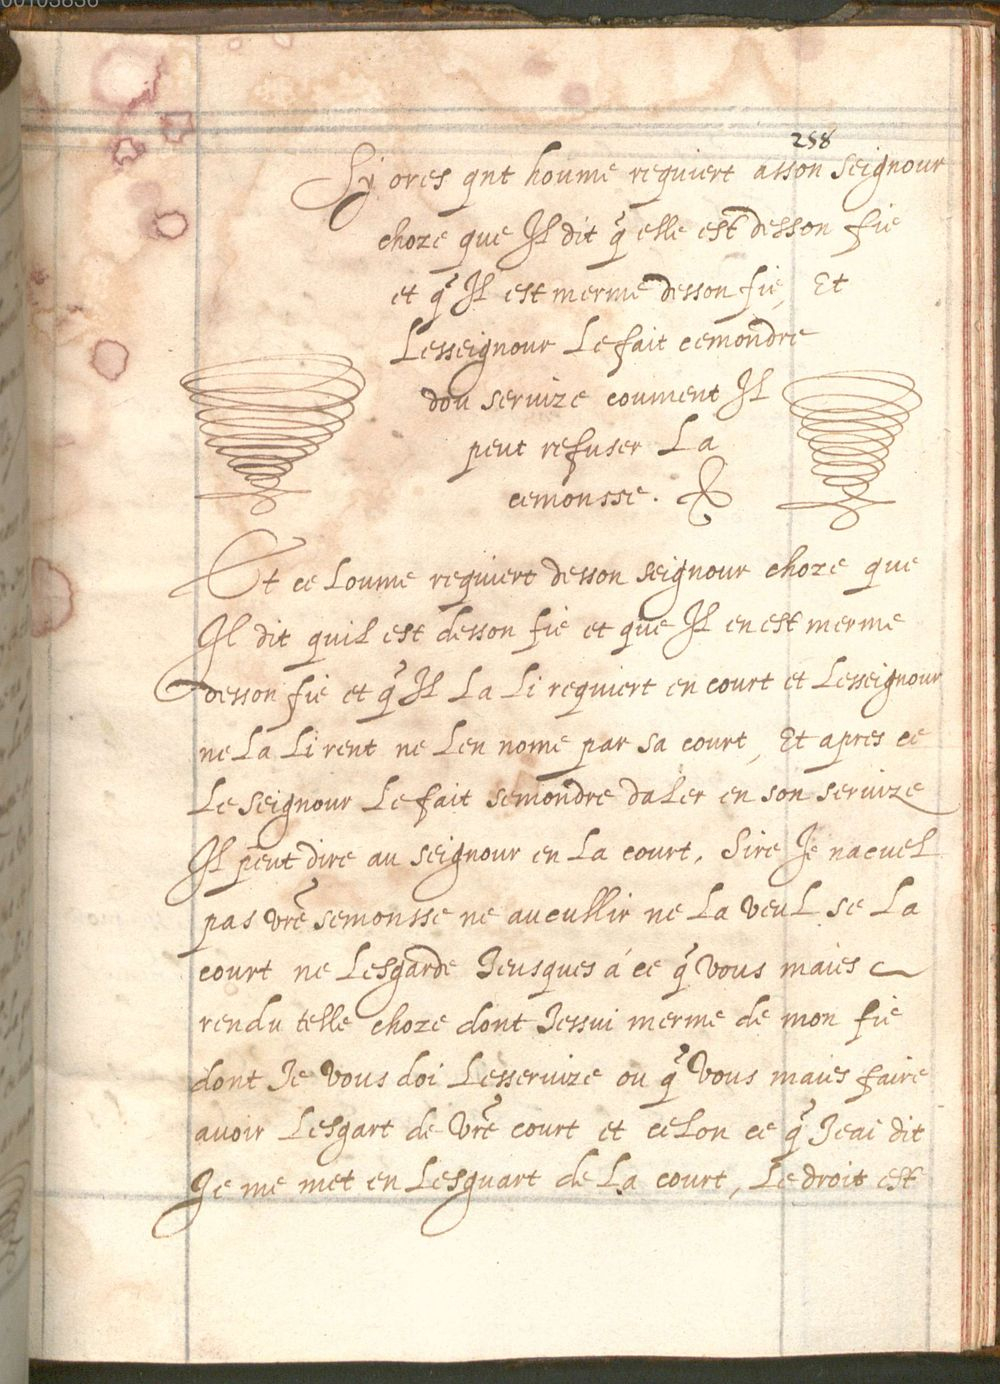 00103836
258
Sy ores qnt houme requiert asson seignour
choze que Il dit q̃ elle est desson fie
et q̃ Il est merme desson fie, Et
Lesseignour Le fait cemondre
dou seruize coument Il
peut refuser La
cemonsse.
Et ce Loume requiert desson seignour choze que
Il dit quil est desson fie et que Il en est merme
desson fie et q̃ Il La Li requiert en court et Lesseignour
ne La Li rent ne Len nome par sa court, Et apres ce
Le seignour Le fait semondre daler en son seruize
Il peut dire au seignour en La court, Sire Je nacuel
pas vr̃e semonsse ne aucullir ne La veul se La
court ne Lesgarde Jeusques á ce q̃ vous maies
rendu telle choze dont Jessui merme de mon fie
dont Je vous doi Lesseruize ou q̃ vous maies faire
auoir Lesgart de vr̃e court et celon ce q̃ Jeai dit
Je me met en Lesguart de La court, Le droit est